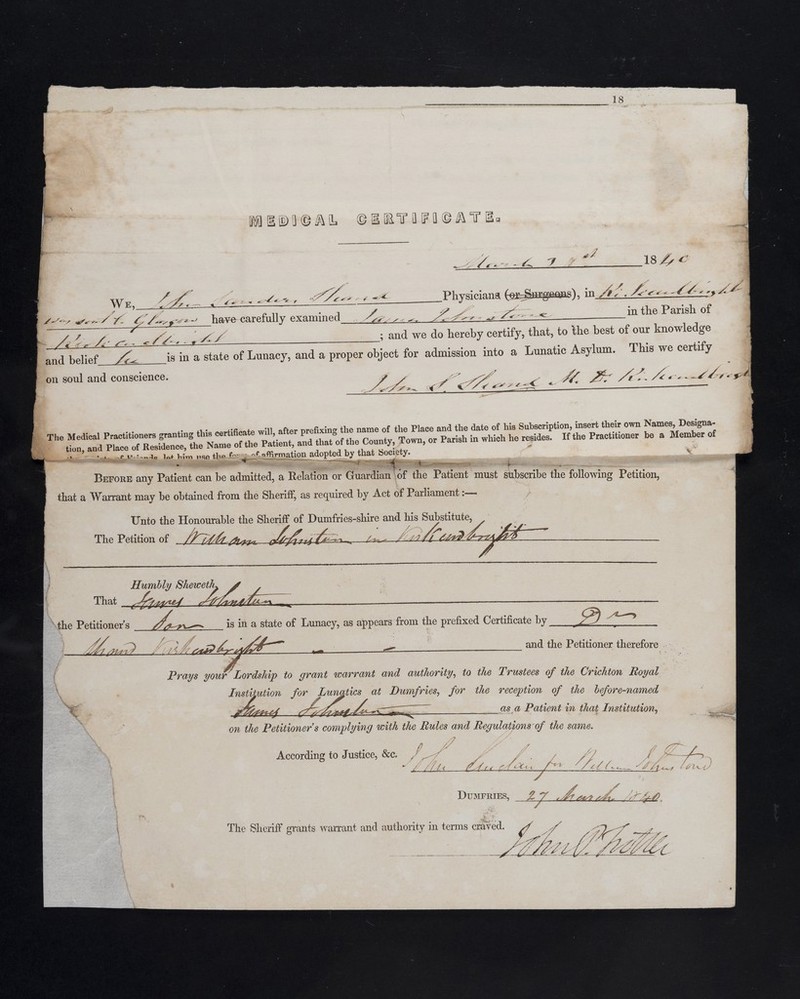 18
MEDICAL CERTIFICATE.
March 1840
WE, John Shand Physicians (or Surgeons), in Kirkcudbright
Glasgow have carefully examined James Johnstone in the Parish of
Kirkcudbright ; and we do hereby certify, that, to the best of our knowledge
and belief he is in a state of Lunacy, and a proper object for admission into a Lunatic Asylum. This we certify
on soul and conscience.
John S. Shand M. D. Kirkcudbright
The Medical Practitioners granting this certificate will, after prefixing the name of the Place and the date of his Subscription, insert their own Names, Designa-
tion, and Place of Residence, the Name of the Patient, and that of the County, Town, or Parish in which he resides. If the Practitioner be a Member of
let him use the form of affirmation adopted by that Society.
BEFORE any Patient can be admitted, a Relation or Guardian of the Patient must subscribe the following Petition,
that a Warrant may be obtained from the Sheriff, as required by Act of Parliament :—
Unto the Honourable the Sheriff of Dumfries-shire and his Substitute,
The Petition of William Johnston in Kirkcudbright
Humbly Sheweth,
That James Johnston
the Petitioner's Son is in a state of Lunacy, as appears from the prefixed Certificate by Dr
Shand Kirkcudbright and the Petitioner therefore
Prays your Lordship to grant warrant and authority, to the Trustees of the Crichton Royal
Institution for Lunatics at Dumfries, for the reception of the before-named
James Johnston as a Patient in that Institution,
on the Petitioner's complying with the Rules and Regulations of the same.
According to Justice, &c. John Sinclair for William Johnstone
DUMFRIES, 27 March 1840.
The Sheriff grants warrant and authority in terms craved.
John P. Trotter